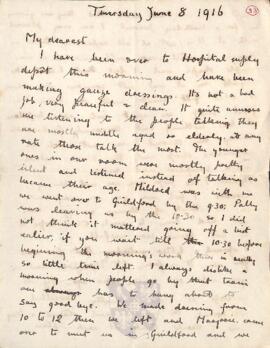 Thursday June 8 1916
My dearest
I have been over to Hospital supply
depot this morning and have been
making gauze dressings. It's not a bad
job, very peaceful & clean. It quite amuses
me listening to the people talking they
are mostly middle aged or elderly, at any
rate those talk the most. The younger
ones in our room were mostly pretty
silent and listened instead of talking as
became their age. Mildred was with me
we went over to Guildford by the 9.30. Patty
was leaving us by the 10.30 so I did
not think it mattered going off a bit
earlier, if you wait till 10.30 before
beginning the morning's work there is
so little time left. I always dislike a
morning when people go by that train
one has to hang about to
say good bye. We made dressings from
10 to 12 then we left and Margaret came
over to meet us in Guildford and we